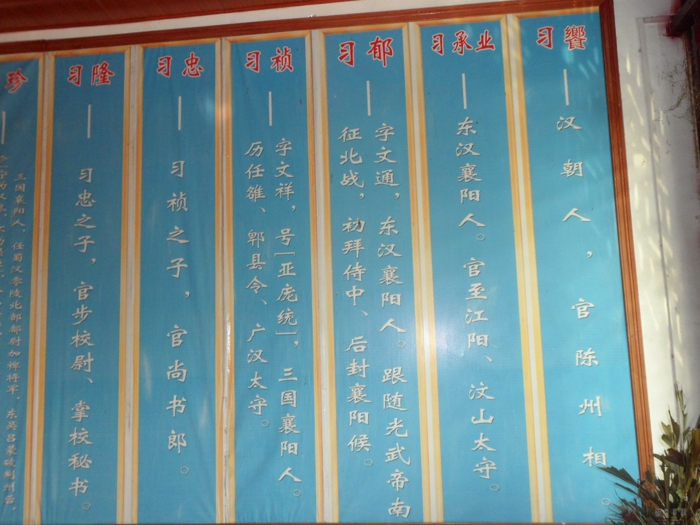 习饗
——汉朝人，官陈州相。
习承业
——东汉襄阳人。官至江阳、汶山太守。
习郁
——字文通，东汉襄阳人。跟随光武帝南
征北战，初拜侍中、后封襄阳候。
习祯
——字文祥，号「亚庞统」，三国襄阳人。
历任雒、郫县令、广汉太守。
习忠
——习祯之子，官尚书郎。
习隆
——习忠之子，官步校尉、掌校秘书。
珍
——三国襄阳人，任蜀汉零陵北部都尉加裨将军，东吴吕蒙破荆州后，